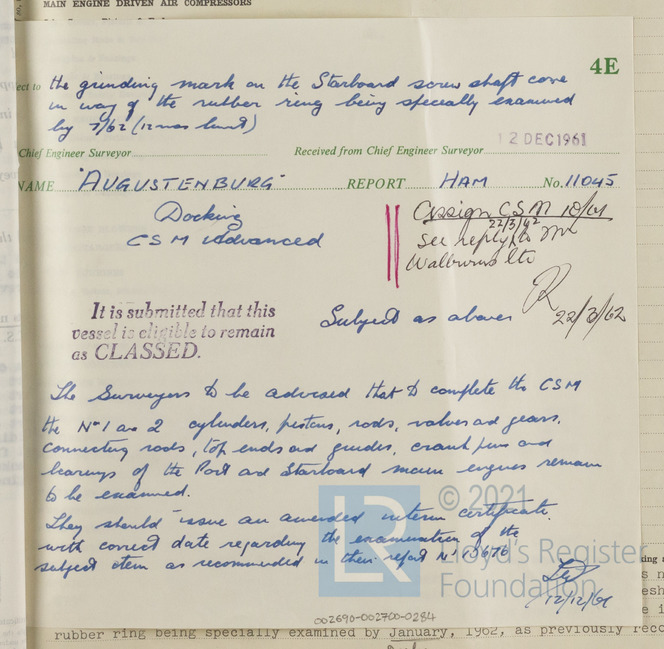 MAIN ENGINE DRIVEN AIR COMPRESSORS
4E
ect to the grinding mark on the Starboard screw shaft cone
in way of the rubber ring being specially examined
by 7/62 (12 mos limit)
12 DEC 1961
Chief Engineer Surveyor
Received from Chief Engineer Surveyor
NAME "AUGUSTENBURG" REPORT HAM No. 11045
Docking
CSM Advanced
Assign CSM 10/61
22/3/62
See reply to
ltr
22/3/62
It is submitted that this
vessel is eligible to remain
as CLASSED.
Subject as above
The Surveyors to be advised that to complete the CSM
the No 1 and 2 cylinders, pistons, rods, valves and gears,
connecting rods, top ends and guides, crank pins and
bearings of the Port and Starboard main engines remain
to be examined.
They should issue an amended interim certificate
with correct date regarding the examination of the
subject item as recommended in their report No
12/12/61
LR
© 2021
Lloyd's Register
Foundation
002690-002700-0284
rubber ring being specially examined by January, 1962, as previously reco